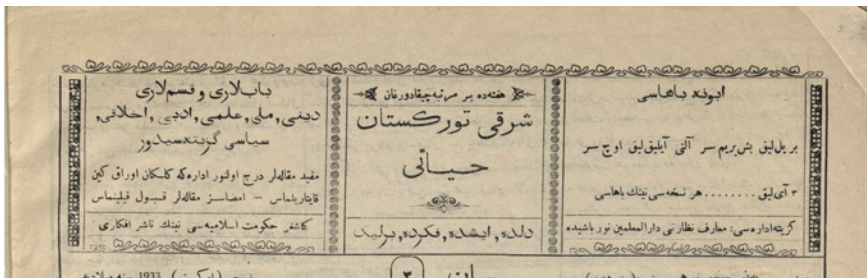 ابونه باهاسی
بر یللیق یش یریم سر آلتی آیلیق‌لیق اوچ سر
۳ آی‌لیق ......... هر نسخه‌سی نینك باهاسی
گزیته‌ اداره‌سی: معارف نظارتی دارالمعلمین نور باشیده
هفته‌ده بر مرتبه چیقادورغان
شرقی تورکستان
حیاتی
دلده، ایشده، فکرده، برلیك
بابلاری و قسم‌لاری
دینی، ملی، علمی، ادبی، اخلاقی،
سیاسی گزیته‌سیدور
مفید مقاله‌لر درج اولنور اداره‌که کلسکان اوراق کین
قایتاریلماس – امضاسز مقاله‌لر قبول قیلینماس
کاشغر حکومت اسلامیه‌سی نینك ناشر افکاری
۳
1933